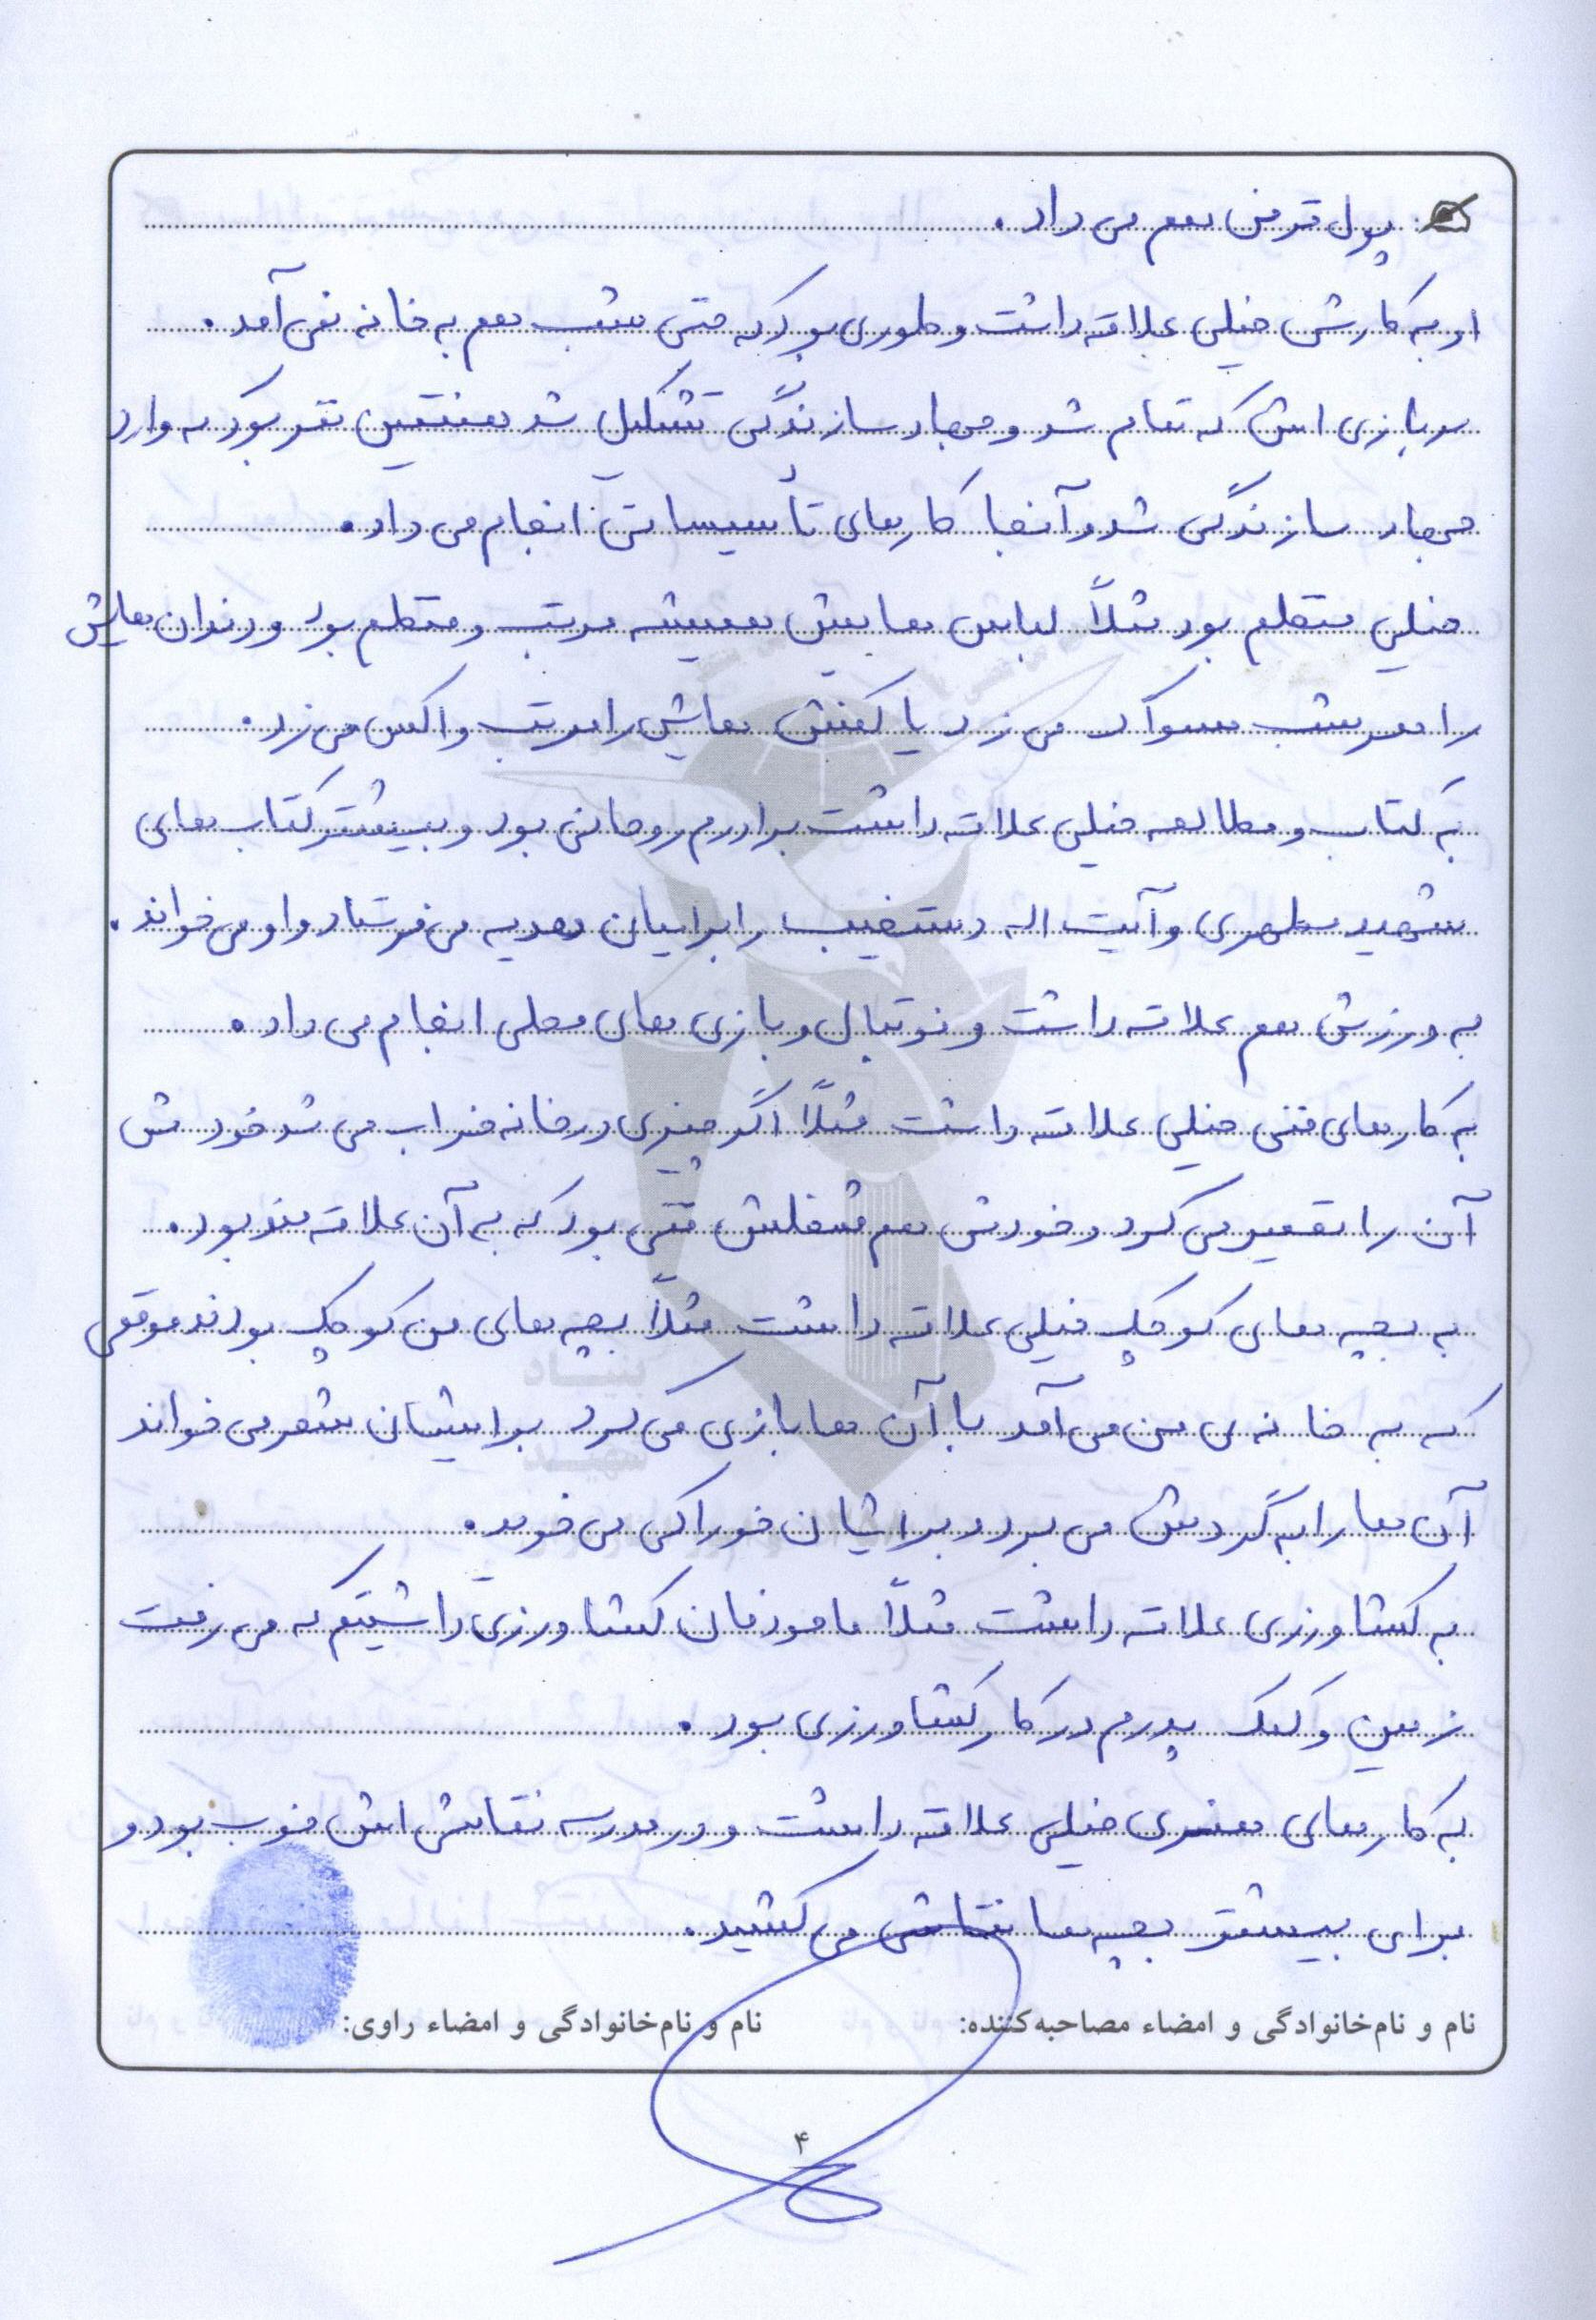 پول قرض هم می داد.
او به کارش خیلی علاقه داشت و طوری بود که حتی شب هم به خانه نمی آمد.
سربازی اش که تمام شد و جهاد سازندگی تشکیل شد هفتمین نفر بود که وارد
جهاد سازندگی شد و آنجا کارهای تأسیساتی انجام می داد.
خیلی منظم بود مثلاً لباس هایش همیشه مرتب و منظم بود و دندان هایش
را هر شب مسواک می زد یا کفش هایش را مرتب واکس می زد.
به کتاب و مطالعه خیلی علاقه داشت برادرم روحانی بود و بیشتر کتاب های
شهید مطهری و آیت اله دستغیب را برایمان هدیه می فرستاد و او می خواند.
به ورزش هم علاقه داشت و فوتبال و بازی های محلی انجام می داد.
به کارهای فنی خیلی علاقه داشت مثلاً اگر چیزی در خانه خراب می شد خودش
آن را تعمیر می کرد و خودش هم شغلش فنی بود که به آن علاقه مند بود.
به بچه های کوچک خیلی علاقه داشت مثلاً بچه های من کوچک بودند موقعی
که به خانه ی من می آمد با آن ها بازی می کرد برایشان شعر می خواند
آن ها را به گردش می برد و برایشان خوراکی می خرید.
به کشاورزی علاقه داشت مثلاً ما خودمان کشاورزی داشتیم که می رفت
زمین و کمک پدرم در کار کشاورزی بود.
به کارهای هنری خیلی علاقه داشت و در مدرسه نقاشی اش خوب بود و
برای بیشتر بچه ها نقاشی می کشید.
نام و نام‌خانوادگی و امضاء مصاحبه‌کننده: نام و نام‌خانوادگی و امضاء راوی:
۴